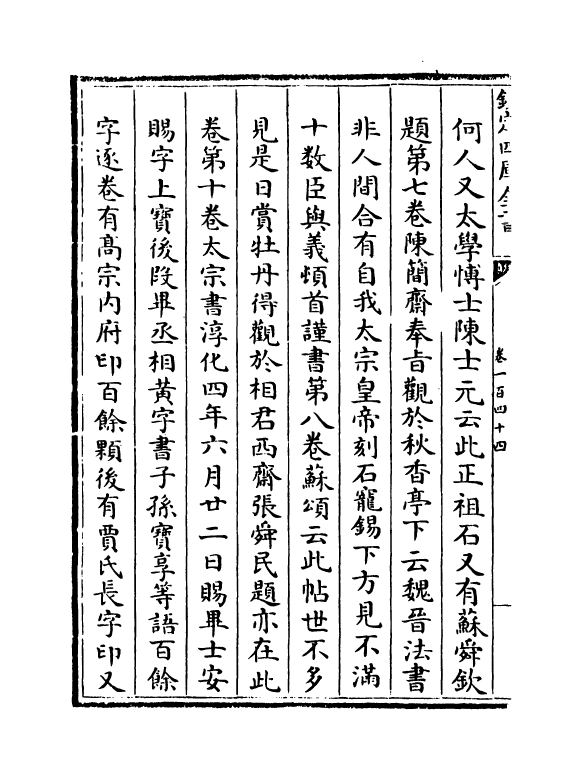 欽定四庫全書
卷一百四十四
何人又太學愽士陳士元云此正祖石又有蘇舜欽
題第七卷陳簡齋奉㫖觀於秋香亭下云魏晉法書
非人間合有自我太宗皇帝刻石寵錫下方見不滿
十数臣與義頓首謹書第八卷蘇頌云此帖世不多
見是日賞牡丹得觀於相君西齋張舜民題亦在此
卷第十卷太宗書淳化四年六月廿二日賜畢士安
賜字上寶後段畢丞相黄字書子孫寶享等語百餘
字逐卷有髙宗内府印百餘顆後有賈氏長字印又